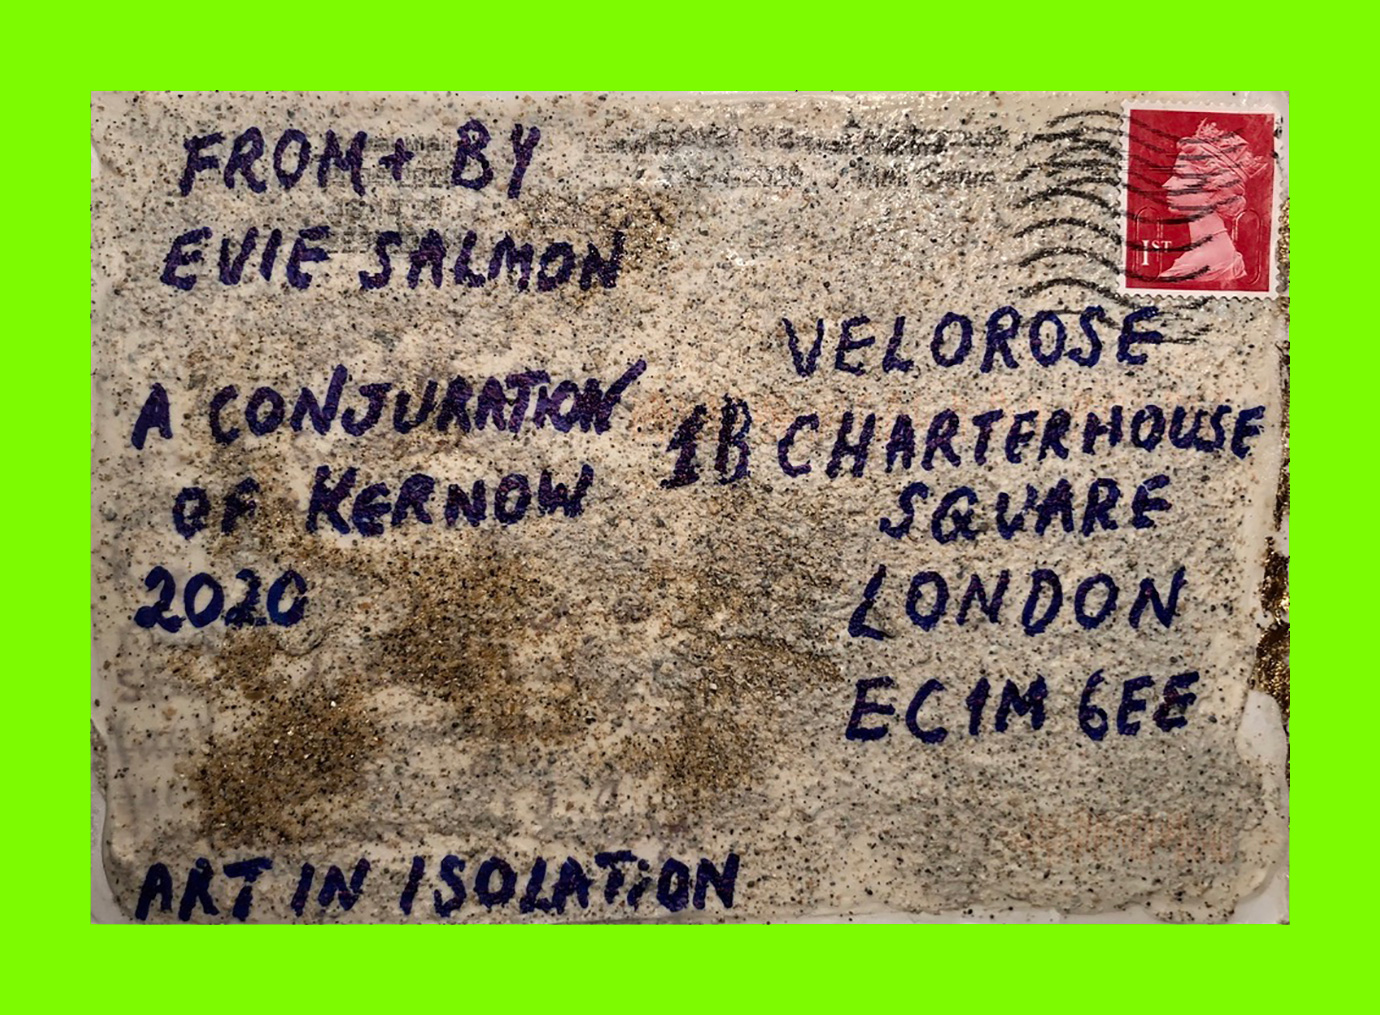 FROM + BY
EVIE SALMON
A CONJURATION
OF KERNOW
2020
ART IN ISOLATION
1ST
VELOROSE
1B CHARTERHOUSE
SQUARE
LONDON
EC1M 6EE